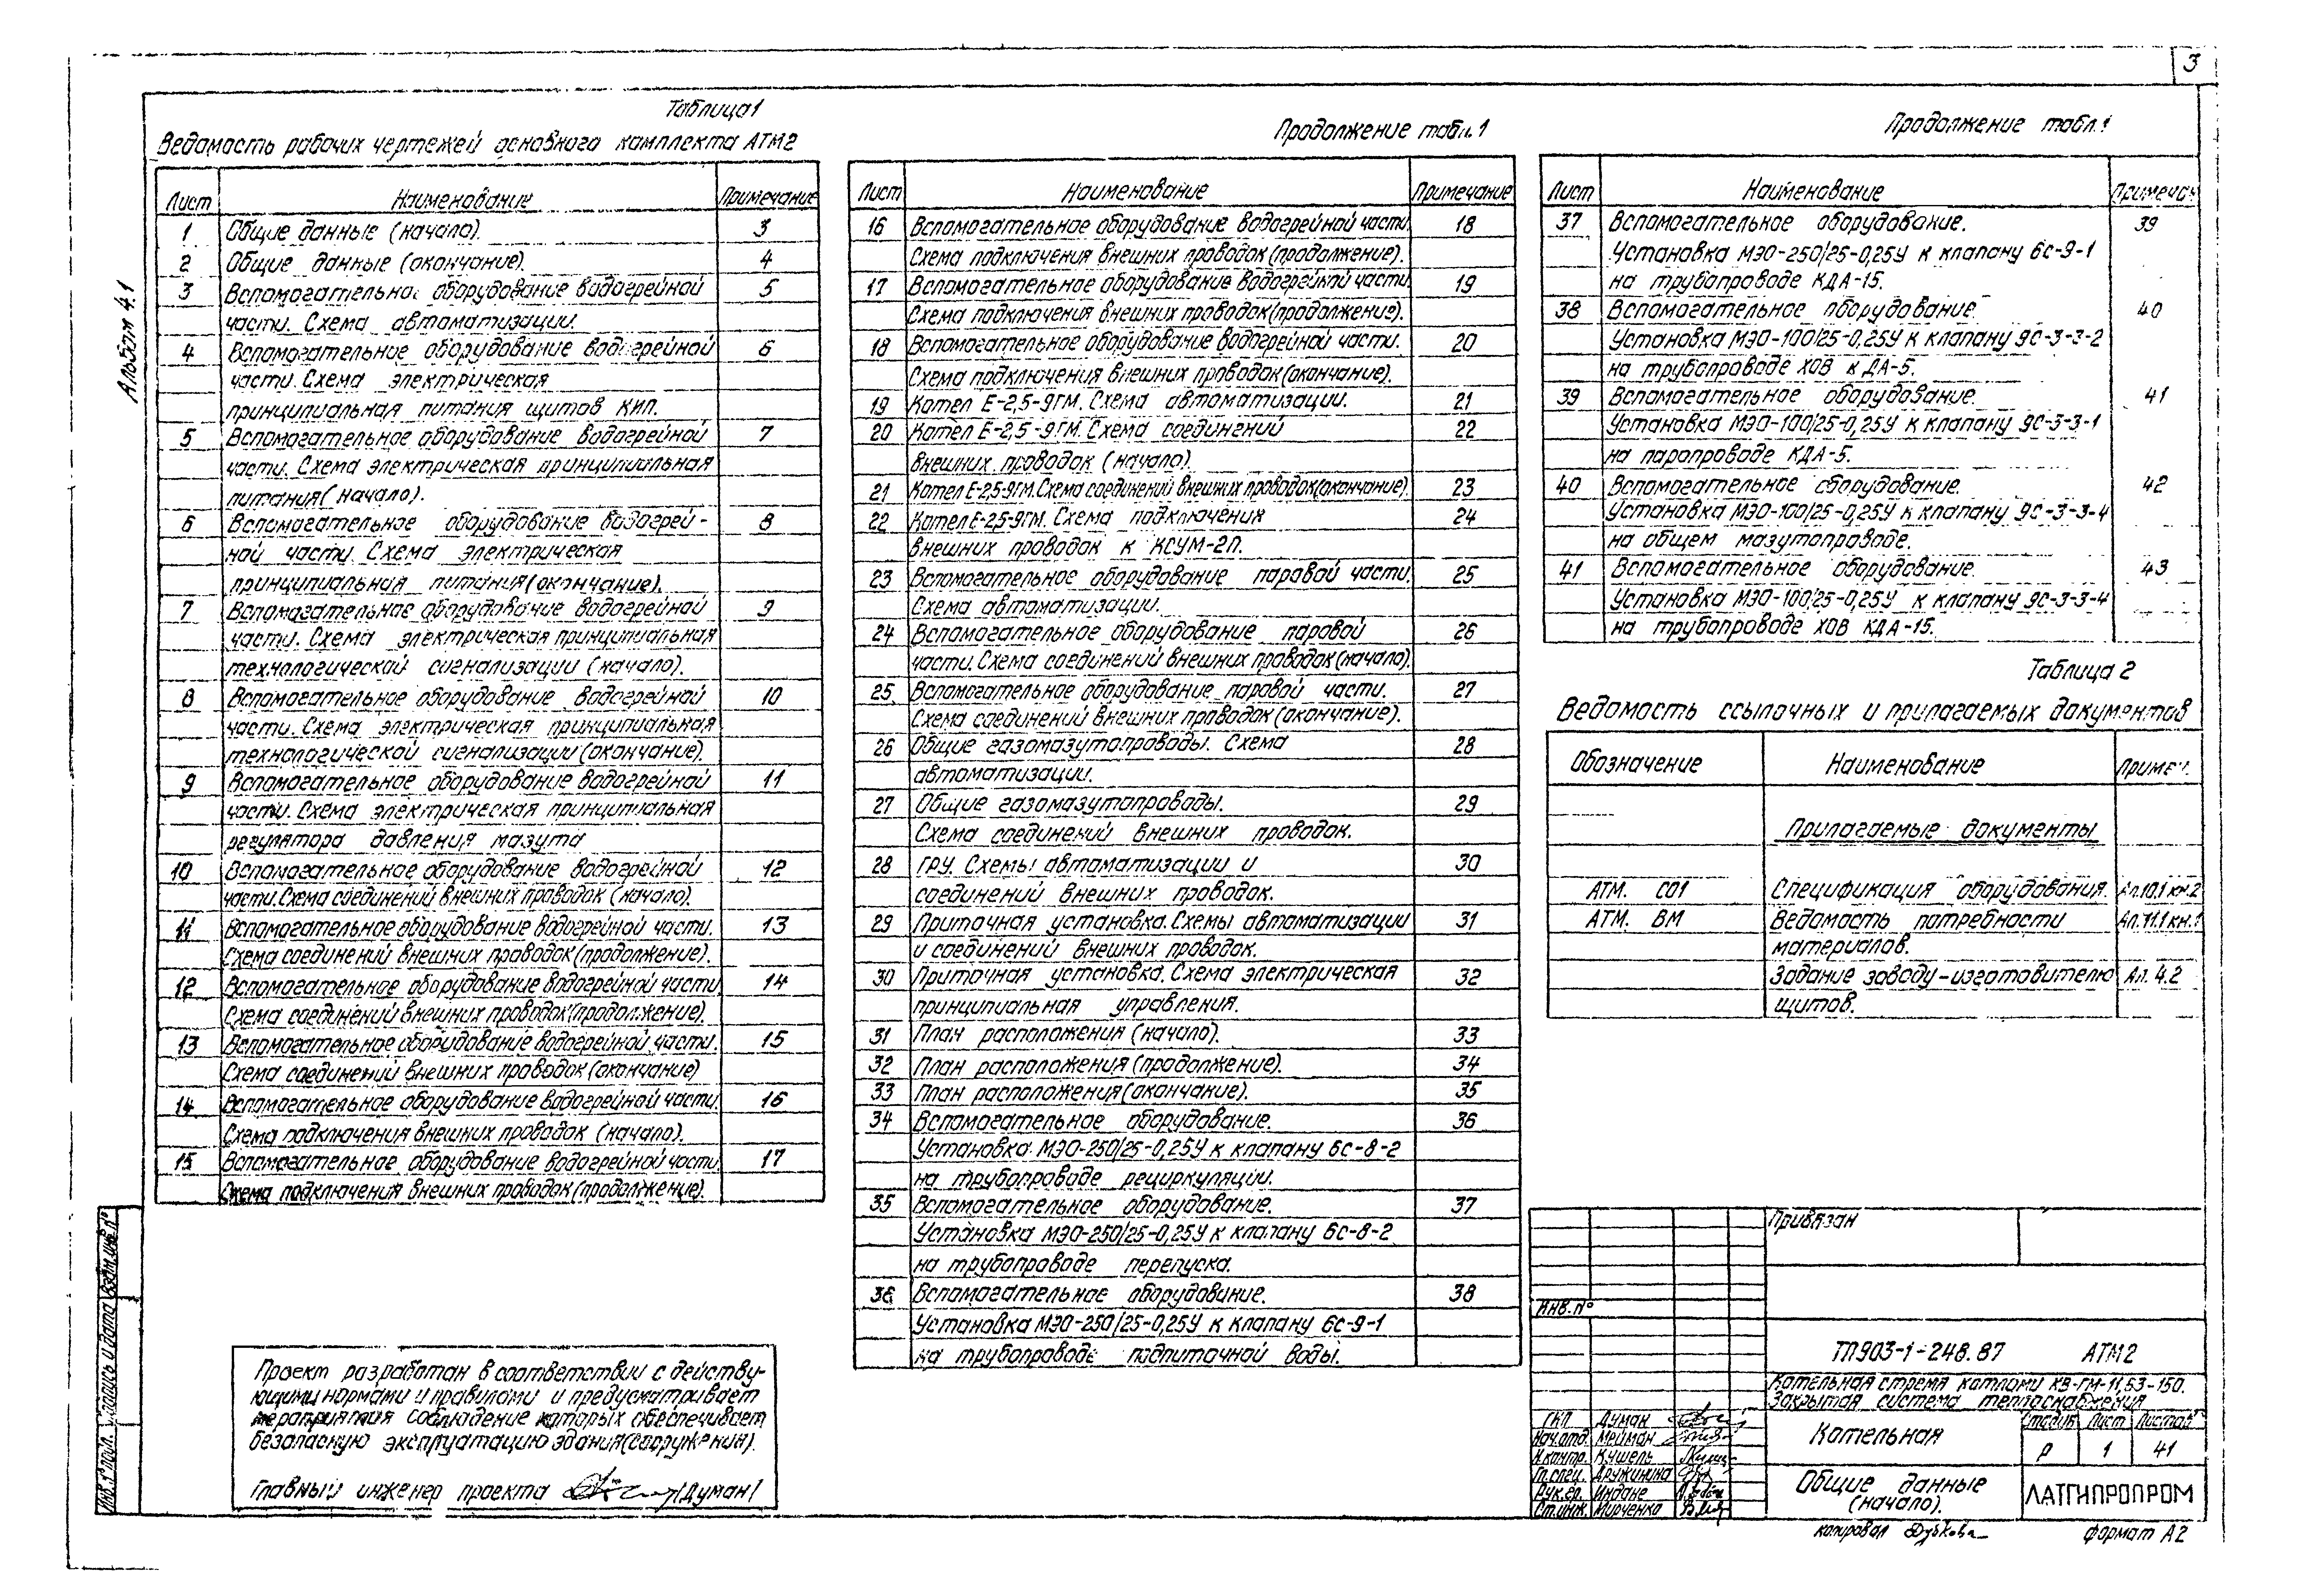 3
Альбом 4.1
Таблица 1
Ведомость рабочих чертежей основного комплекта АТМ2
Лист Наименование Примечание
1 Общие данные (начало). 3
2 Общие данные (окончание). 4
3 Вспомогательное оборудование водогрейной 5
части. Схема автоматизации.
4 Вспомогательное оборудование водогрейной 6
части. Схема электрическая
принципиальная питания щитов КИП.
5 Вспомогательное оборудование водогрейной 7
части. Схема электрическая принципиальная
питания (начало).
6 Вспомогательное оборудование водогрей- 8
ной части. Схема электрическая
принципиальная питания (окончание).
7 Вспомогательное оборудование водогрейной 9
части. Схема электрическая принципиальная
технологической сигнализации (начало).
8 Вспомогательное оборудование водогрейной 10
части. Схема электрическая принципиальная
технологической сигнализации (окончание).
9 Вспомогательное оборудование водогрейной 11
части. Схема электрическая принципиальная
регулятора давления мазута
10 Вспомогательное оборудование водогрейной 12
части. Схема соединений внешних проводок (начало).
11 Вспомогательное оборудование водогрейной части. 13
Схема соединений внешних проводок (продолжение).
12 Вспомогательное оборудование водогрейной части 14
Схема соединений внешних проводок (продолжение).
13 Вспомогательное оборудование водогрейной части. 15
Схема соединений внешних проводок (окончание)
14 Вспомогательное оборудование водогрейной части. 16
Схема подключения внешних проводок (начало).
15 Вспомогательное оборудование водогрейной части. 17
Схема подключения внешних проводок (продолжение).
Продолжение табл. 1
Лист Наименование Примечание
16 Вспомогательное оборудование водогрейной части. 18
Схема подключения внешних проводок (продолжение).
17 Вспомогательное оборудование водогрейной части. 19
Схема подключения внешних проводок (продолжение).
18 Вспомогательное оборудование водогрейной части. 20
Схема подключения внешних проводок (окончание).
19 Котел Е-2,5-9ГМ. Схема автоматизации. 21
20 Котел Е-2,5-9ГМ. Схема соединений 22
внешних проводок (начало)
21 Котел Е-2,5-9ГМ. Схема соединений внешних проводок (окончание) 23
22 Котел Е-2,5-9ГМ. Схема подключения 24
внешних проводок к КСУМ-2П.
23 Вспомогательное оборудование паровой части. 25
Схема автоматизации.
24 Вспомогательное оборудование паровой 26
части. Схема соединений внешних проводок (начало).
25 Вспомогательное оборудование паровой части. 27
Схема соединений внешних проводок (окончание).
26 Общие газомазутопроводы. Схема 28
автоматизации.
27 Общие газомазутопроводы. 29
Схема соединений внешних проводок.
28 ГРУ. Схемы автоматизации и 30
соединений внешних проводок.
29 Приточная установка. Схемы автоматизации 31
и соединений внешних проводок.
30 Приточная установка. Схема электрическая 32
принципиальная управления.
31 План расположения (начало). 33
32 План расположения (продолжение). 34
33 План расположения (окончание). 35
34 Вспомогательное оборудование. 36
Установка МЭО-250/25-0,25У к клапану 6с-8-2
на трубопроводе рециркуляции.
35 Вспомогательное оборудование. 37
Установка МЭО-250/25-0,25У к клапану 6с-8-2
на трубопроводе перепуска.
36 Вспомогательное оборудование. 38
Установка МЭО-250/25-0,25У к клапану 6с-9-1
на трубопроводе подпиточной воды.
Продолжение табл. 1
Лист Наименование Примечан
37 Вспомогательное оборудование. 39
Установка МЭО-250/25-0,25У к клапану 6с-9-1
на трубопроводе КДА-15.
38 Вспомогательное оборудование. 40
Установка МЭО-100/25-0,25У к клапану 9с-3-3-2
на трубопроводе ХОВ к ДА-5.
39 Вспомогательное оборудование. 41
Установка МЭО-100/25-0,25У к клапану 9с-3-3-1
на паропроводе КДА-5.
40 Вспомогательное оборудование. 42
Установка МЭО-100/25-0,25У к клапану 9с-3-3-4
на общем мазутопроводе.
41 Вспомогательное оборудование. 43
Установка МЭО-100/25-0,25У к клапану 9с-3-3-4
на трубопроводе ХОВ КДА-15.
Таблица 2
Ведомость ссылочных и прилагаемых документов
Обозначение Наименование Примеч.
Прилагаемые документы
АТМ. СО1 Спецификация оборудования. Ал.10.1 кн.2
АТМ. ВМ Ведомость потребности Ал.11.1 кн.1
материалов.
Задание заводу-изготовителю Ал. 4.2
щитов.
Проект разработан в соответствии с действу-
ющими нормами и правилами и предусматривает
мероприятия соблюдение которых обеспечивает
безопасную эксплуатацию здания (сооружения).
Главный инженер проекта /Думан/
Инв.№ подл. Подпись и дата Взам. инв.№
Привязан
Инв. №
ТП903-1-248.87 АТМ2
Котельная с тремя котлами КВ-ГМ-11,63-150.
Закрытая система теплоснабжения
ГИП Думан
Нач.отд. Мейман
Н.контр. Кушель
Гл.спец. Дружинина
Рук.гр. Индане
Ст.инж. Мирченко
Котельная
Стадия Лист Листов
Р 1 41
Общие данные
(начало).
ЛАТГИПРОПРОМ
копировал Дубкова
формат А2